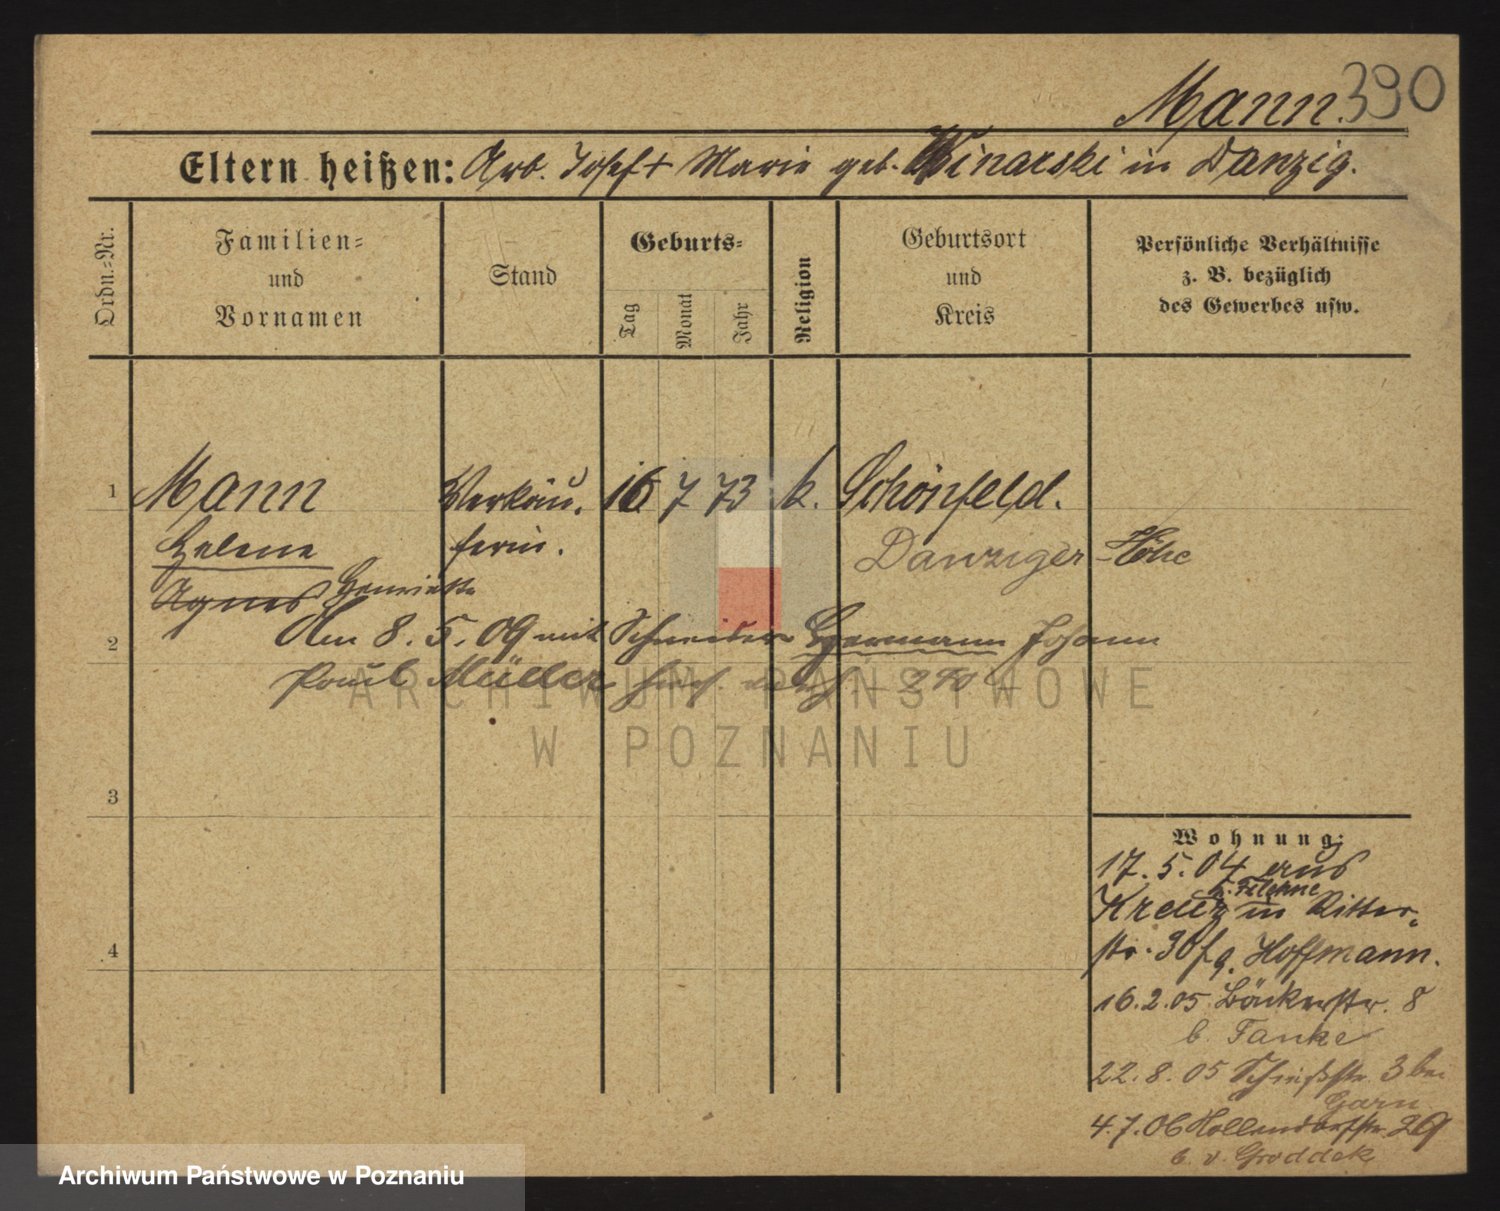 Mann. 390
Eltern heißen: Arb. Josef † Marie geb. Winarski in Danzig.
Ordn.-Nr.
Familien-
und
Vornamen
Stand
Geburts-
Tag
Monat
Jahr
Religion
Geburtsort
und
Kreis
Persönliche Verhältnisse
z. B. bezüglich
des Gewerbes usw.
1 Mann Verkäu- 16 7 73 k. Schönfeld.
Helene ferin. Danziger-Höhe
Agnes Henriette
2 Am 8. 5. 09 mit Schneider Hermann Johann
Paul Müller
3
4
Wohnung:
17. 5. 04 aus
Kreuz in Ritter-
str. 30 Hoffmann.
16. 2. 05 Bäckerstr. 8
b. Fanke
22. 8. 05 3 bei
Garn
4. 7. 06 Hollendorfstr. 29
b. v. Groddek
ARCHIWUM PAŃSTWOWE
W POZNANIU
Archiwum Państwowe w Poznaniu